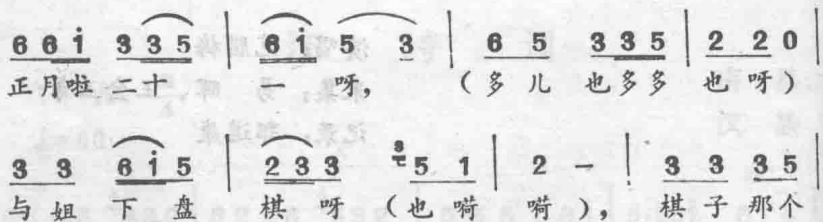 6 6 i 3 3 5 | 6 i 5 3 | 6 5 3 3 5 | 2 2 0 |
正月啦 二十 一 呀, (多 儿 也多多 也 呀)
3 3 6 i 5 | 2 3 3 3 5 1 | 2 - | 3 3 3 5 |
与 姐 下 盘 棋 呀 (也 嗬 嗬), 棋 子 那个